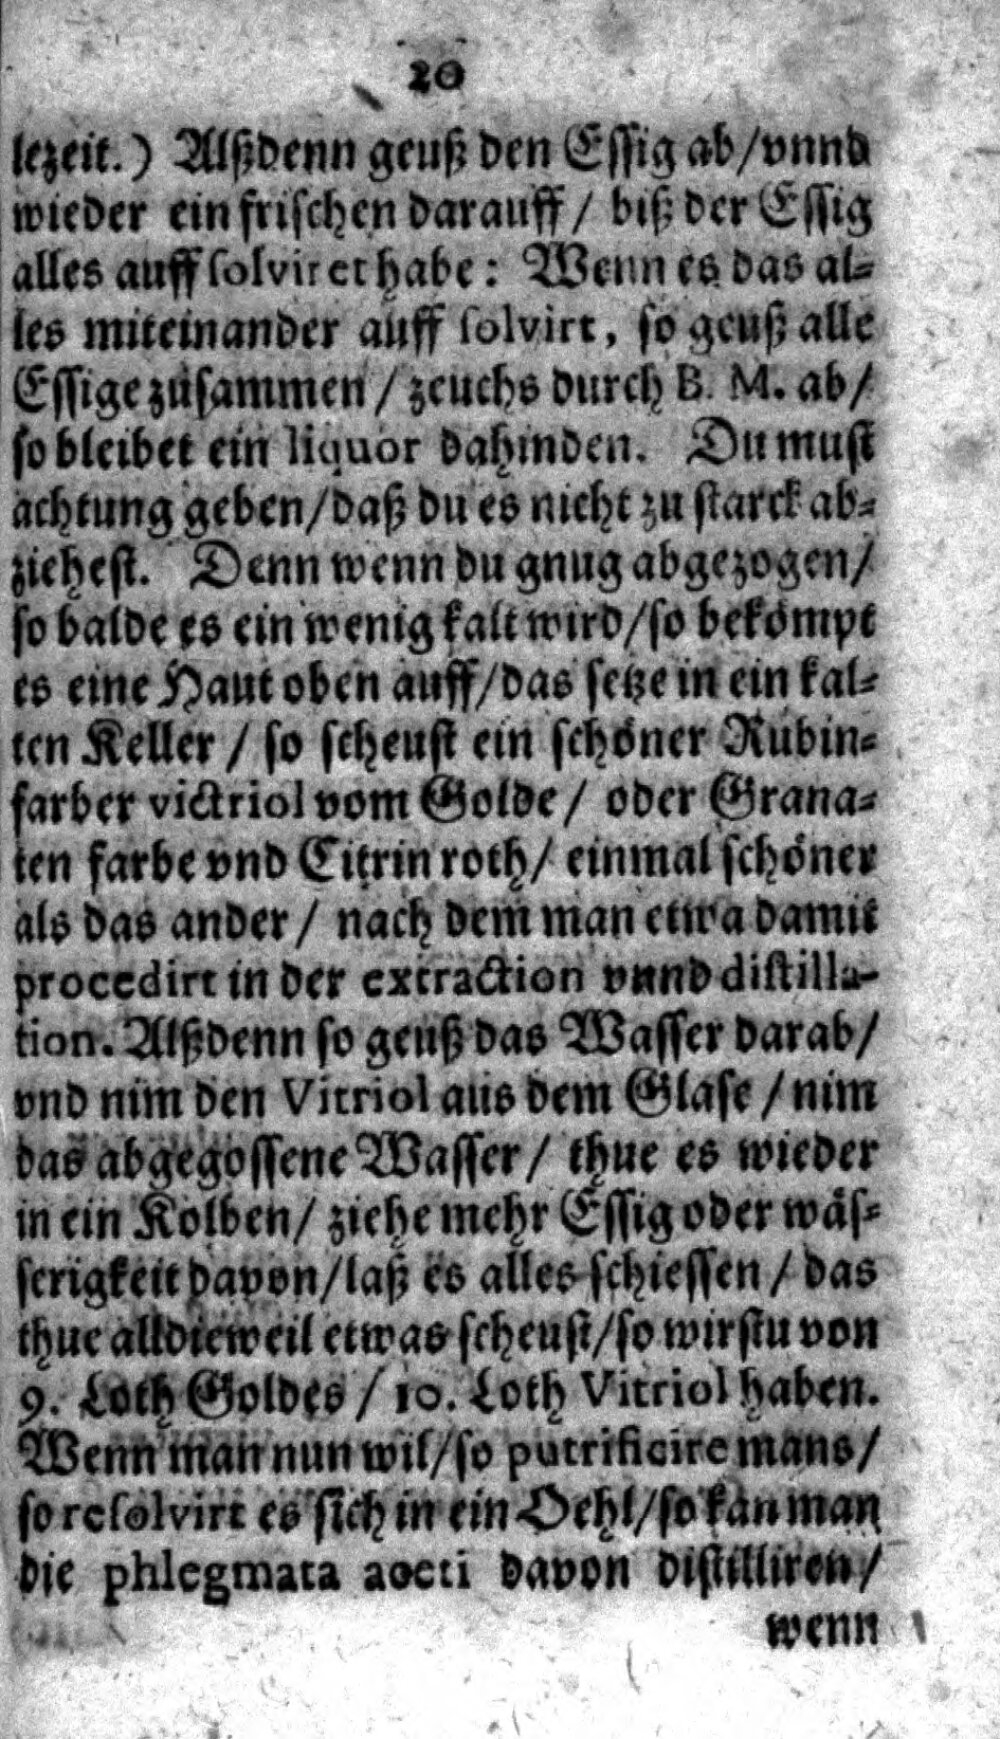 20
lezeit.) Alßdenn geuß den Essig ab/vnnd
wieder ein frischen darauff/ biß der Essig
alles auff solviret habe: Wenn es das al-
les miteinander auff solvirt, so geuß alle
Essige zusammen/ zeuchs durch B. M. ab/
so bleibet ein liquor dahinden. Du must
achtung geben/daß du es nicht zu starck ab-
ziehest. Denn wenn du gnug abgezogen/
so balde es ein wenig kalt wird/so bekömpt
es eine Haut oben auff/das setze in ein kal-
ten Keller/ so scheust ein schöner Rubin-
farber victriol vom Golde/ oder Grana-
ten farbe vnd Citrin roth/ einmal schöner
als das ander/ nach dem man etwa damit
procedirt in der extraction vnnd distilla-
tion. Alßdenn so geuß das Wasser darab/
vnd nim den Vitriol aus dem Glase/nim
das abgegossene Wasser/ thue es wieder
in ein Kolben/ ziehe mehr Essig oder wäs-
serigkeit davon/laß es alles schiessen/ das
thue alldieweil etwas scheust/so wirstu von
9. Loth Goldes/10. Loth Vitriol haben.
Wenn man nun wil/so putrificire mans/
so resolvirt es sich in ein Oehl/so kan man
die phlegmata aceti davon distilliren/
wenn